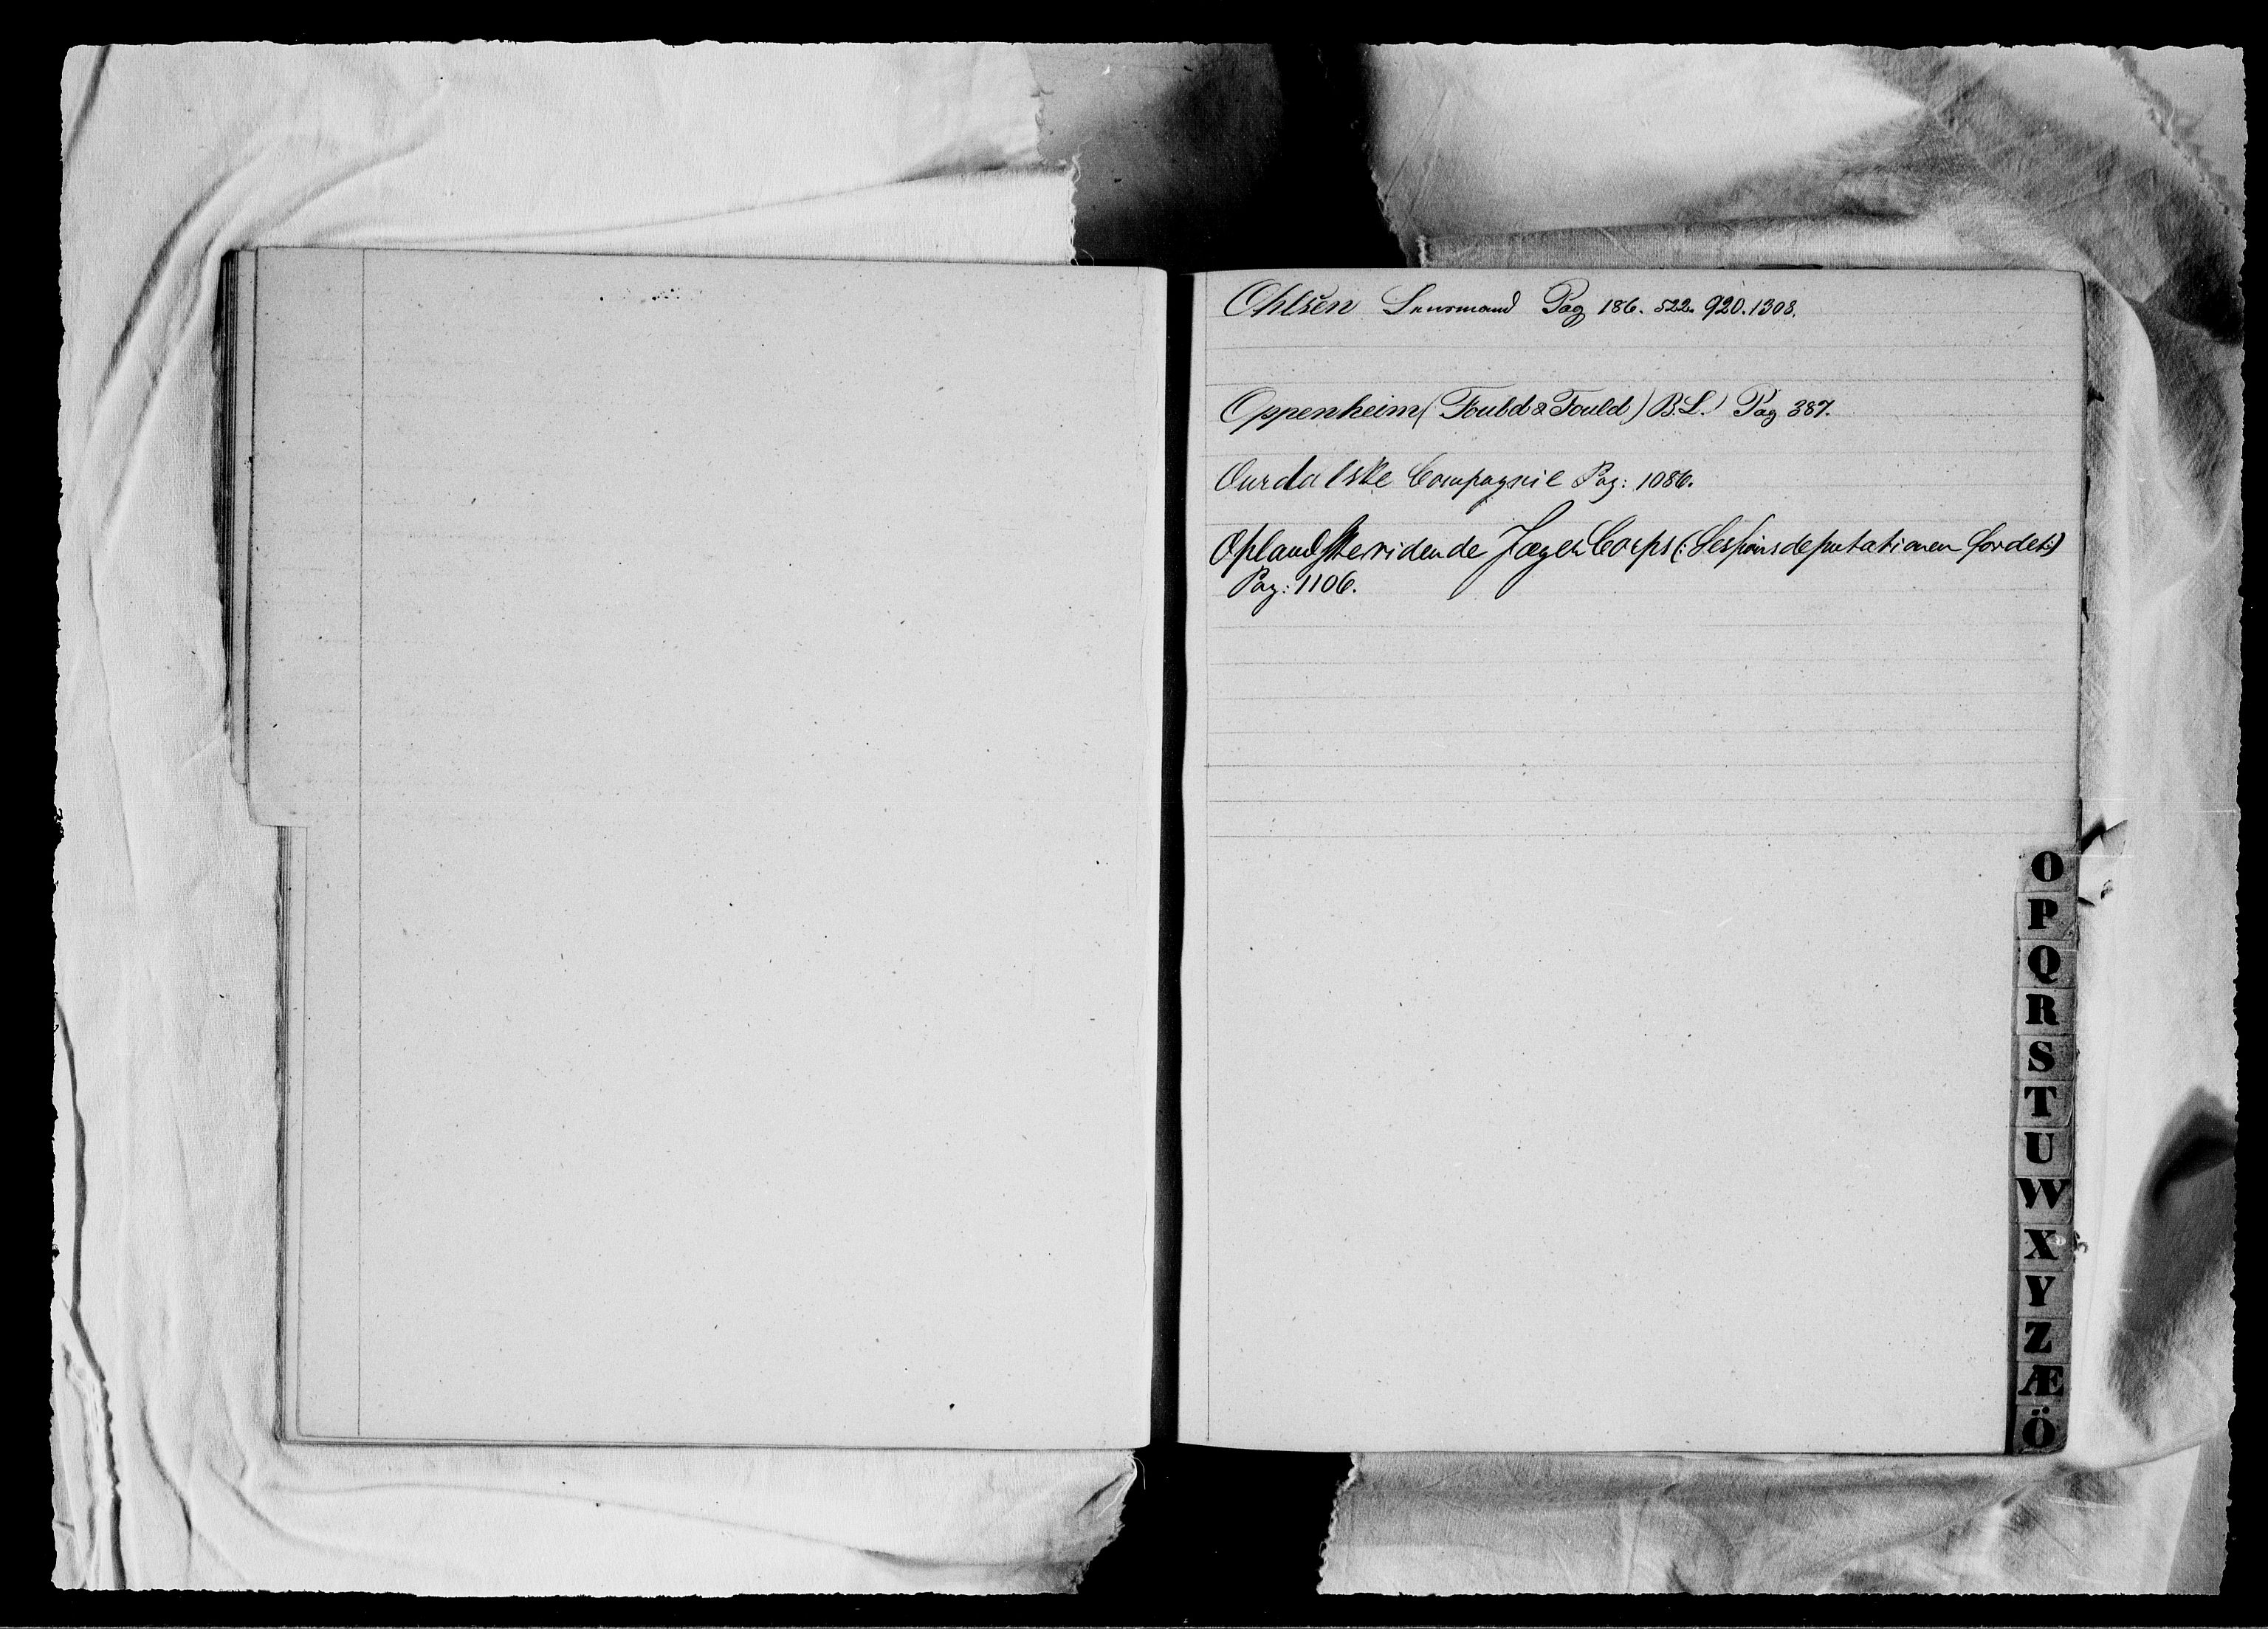 Ohlsen Lensmand Pag 186. 522. 920. 1308.
Oppenheim (Fould & Fould) B.L.) Pag 387.
Ourdalske Compagnie Pag: 1086.
Oplandske ridende Jæger Corps (: Sessionsdeputationen for det:)
Pag: 1106.
O
P
Q
R
S
T
U
W
X
Y
Z
Æ
Ö